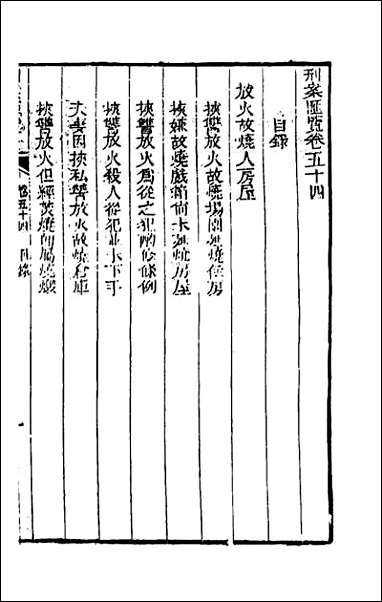 刑案匯覽卷五十四
目錄
放火故燒人房屋
挾讐放火故燒場園延燒住房
挾嫌故燒戲箱尚未延燒房屋
挾讐放火為從之犯酌修條例
挾讐放火殺人從犯並未下手
夫妾因挾私讐放火故燒倉庫
挾讐放火但經焚燒旋即燒燬
卷五十四 目錄